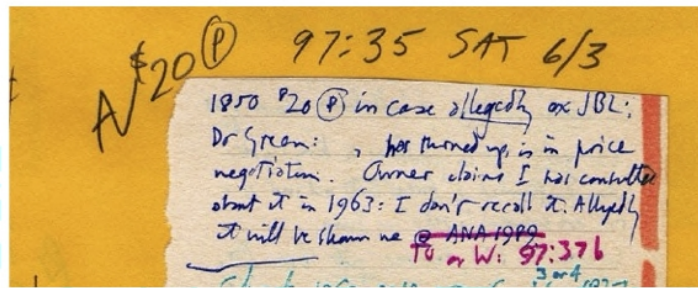 A/ $20 Ⓟ 97:35 SAT 6/3
1850 $20 Ⓟ in case allegedly ex JBL;
Dr Green: , has turned up, is in price
negotiation. Owner claims I was consulted
about it in 1963: I don't recall it. Allegedly
it will be shown me @ ANA 1989
TU or W: 97:376
3 or 4